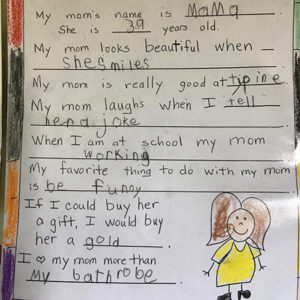 My mom's name is MaMa
She is 39 years old.
My mom looks beautiful when
she smiles
My mom is really good at tipine
My mom laughs when I tell
hena joke
When I am at school my mom
working
My favorite thing to do with my mom
is be funny
If I could buy her
a gift, I would buy
her a gold.
I ♡ my mom more than
My bathrobe